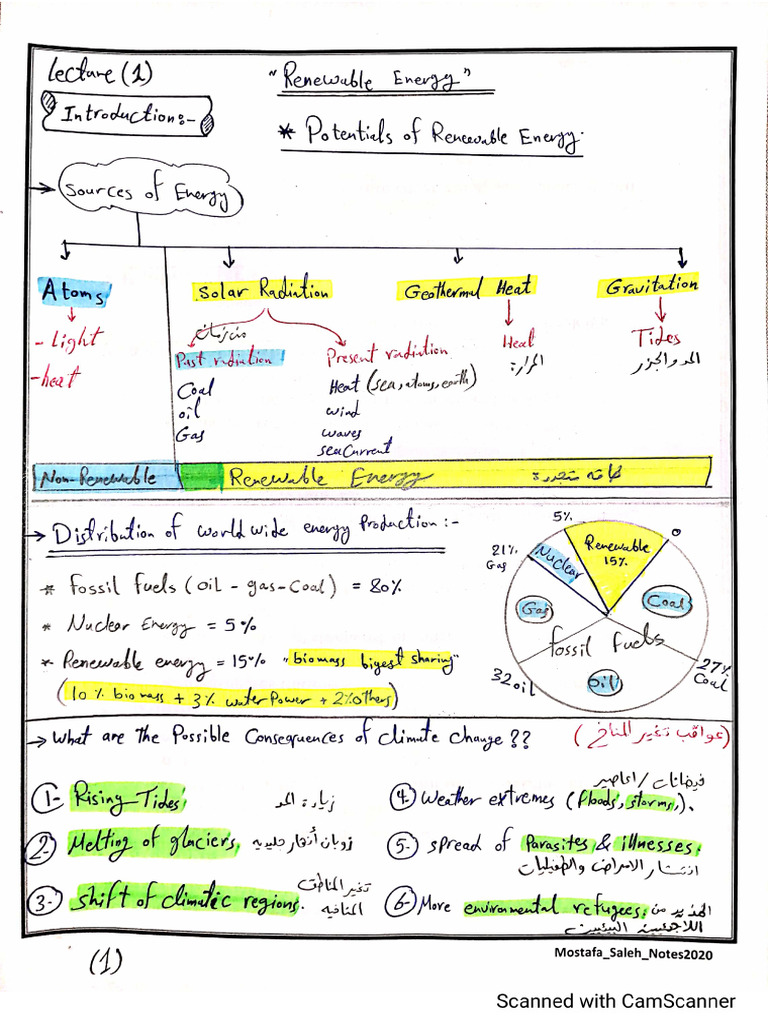 Lecture (1)
"Renewable Energy"
Introduction:-
* Potentials of Renewable Energy.
→ Sources of Energy
Atoms
Solar Radiation
Geothermal Heat
Gravitation
- Light
-heat
من زمان
Past radiation
Coal
oil
Gas
Present radiation
Heat (sea, atoms, earth)
wind
waves
sea Current
Heat
الحرارة
Tides
المد والجزر
Non-Renewable
Renewable Energy
طاقه متجدده
→ Distribution of world wide energy Production:-
* Fossil Fuels (Oil - gas-Coal) = 80%
* Nuclear Energy = 5%
* Renewable energy = 15% "biomass bigest sharing"
(10% biomass + 3% water Power + 2% Others)
5%
0
21%
Gas
Nuclear
Renewable
15%
Gas
Coal
Fossil Fuels
32 oil
Oil
27%
Coal
→ What are the Possible Consequences of climate change??
(عواقب تغير المناخ)
1- Rising Tides,
زيادة المد
2- Melting of glaciers,
ذوبان أنهار جليديه
3- shift of climatic regions.
تغير المناطق
المناخيه
4- Weather extremes (floods, storms,).
فيضانات / اعاصير
5- spread of Parasites & illnesses.
انتشار الامراض والطفيليات
6- More environmental refugees.
المزيد من
اللاجئين البيئيين
(1)
Mostafa_Saleh_Notes2020
Scanned with CamScanner